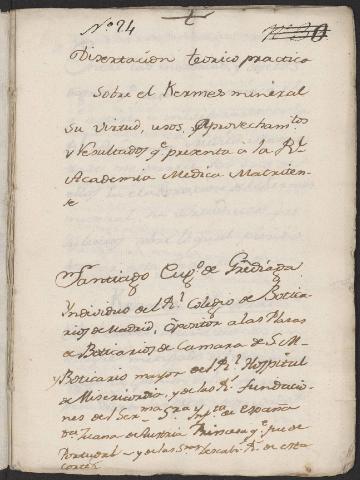 Nº 24
Disertacion teorico practica
sobre el Kermes mineral
su virtud, usos, Aprovecham.tos
y Resultados q.e presenta a la R.l
Academia Medica Matriten-
se
Santiago de
Yndividuo del R.l Colegio de Botica-
rios de Madrid, Opositor a las Plazas
de Boticarios de Camara de S. M.
y Boticario mayor del R.l Hospital
de Misericordia, y de las R.s fundacio-
nes del Ser.ma Sra Ynf.ta de España
D.a Juana de Austria Princesa q.e fue de
Portugal y de las Sras Descalz.s R.s de esta
Corte